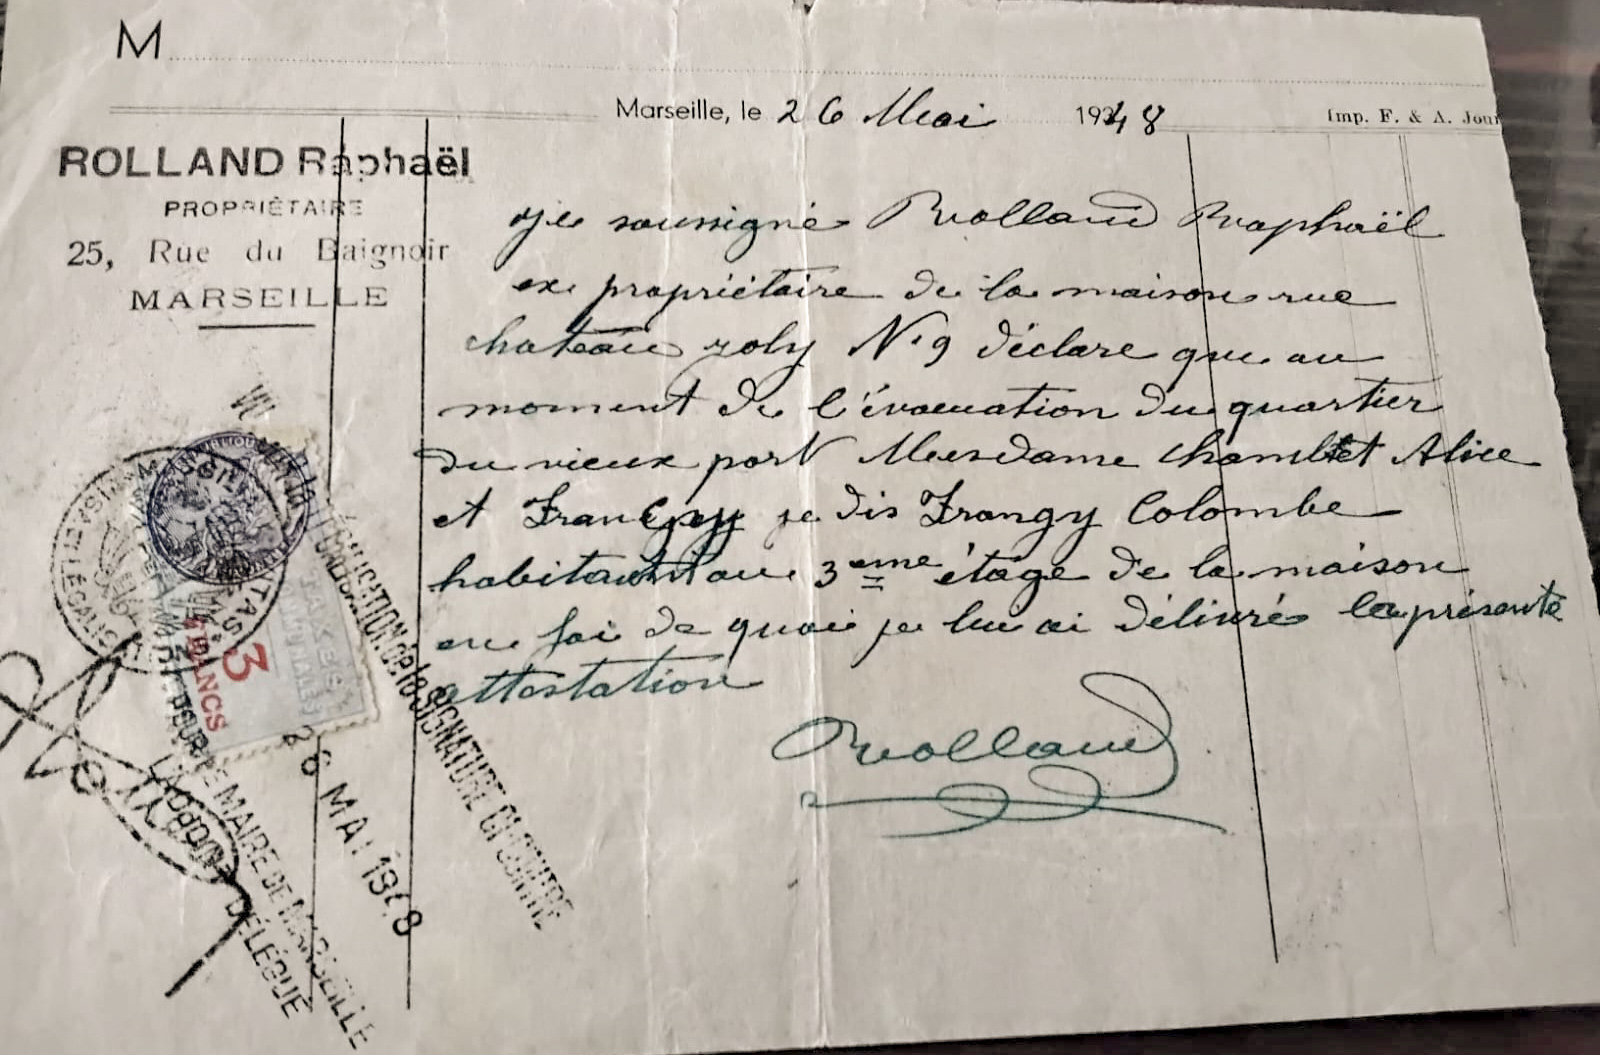 M
Marseille, le 26 Mai 1948
Imp. F. & A. Jour
ROLLAND Raphaël
PROPRIÉTAIRE
25, Rue du Baignoir
MARSEILLE
Je soussigné Rolland Raphaël
ex propriétaire de la maison rue
chateau Joly N° 9 déclare que au
moment de l'évacuation du quartier
du vieux port Mesdame Alice
et je dis Frangy Colombe
habitaient au 3ème étage de la maison
en foi de quoi je lui ai délivré la présente
attestation
Rolland
VU
LÉGALISATION de la SIGNATURE CI-CONTRE
3
FRANCS
26 MAI 1948
POUR LE MAIRE DE MARSEILLE
L'ADJOINT DÉLÉGUÉ